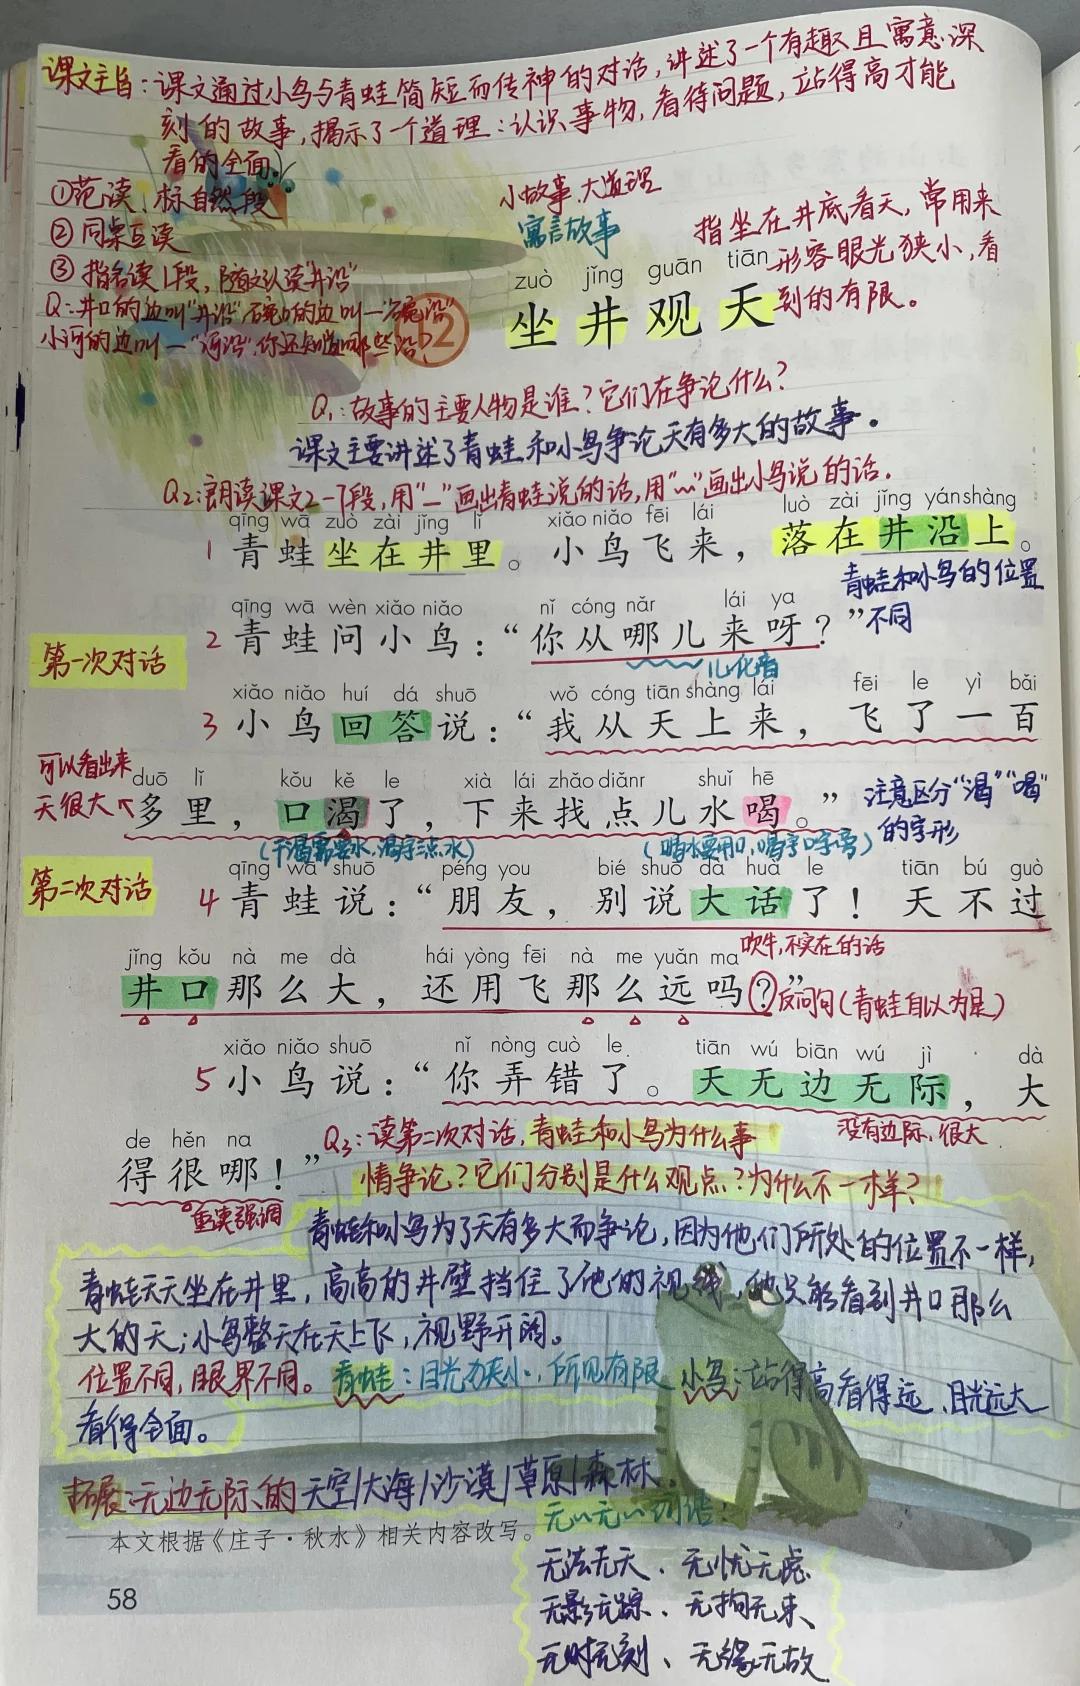 课文主旨：课文通过小鸟与青蛙简短而传神的对话，讲述了一个有趣且寓意深
刻的故事，揭示了一个道理：认识事物，看待问题，站得高才能
看的全面。
①范读、标自然段
②同桌互读
③指名读1段，随文认读"井沿"
Q：井口的边叫"井沿"碗口的边叫一"碗沿"
小河的边叫一"河沿"，你还知道哪些沿？
小故事、大道理
寓言故事
指坐在井底看天，常用来
形容眼光狭小，看
到的有限。
12
zuò jǐng guān tiān
坐井观天
Q₁：故事的主要人物是谁？它们在争论什么？
课文主要讲述了青蛙和小鸟争论天有多大的故事。
Q₂：朗读课文2-7段，用"—"画出青蛙说的话，用"﹏"画出小鸟说的话。
qīng wā zuò zài jǐng lǐ xiǎo niǎo fēi lái luò zài jǐng yán shàng
1 青蛙坐在井里。小鸟飞来，落在井沿上。
青蛙和小鸟的位置
不同
qīng wā wèn xiǎo niǎo nǐ cóng nǎr lái ya
2 青蛙问小鸟：“你从哪儿来呀？”
儿化音
第一次对话
xiǎo niǎo huí dá shuō wǒ cóng tiān shàng lái fēi le yì bǎi
3 小鸟回答说：“我从天上来，飞了一百
可以看出来
天很大
duō lǐ kǒu kě le xià lái zhǎo diǎnr shuǐ hē
多里，口渴了，下来找点儿水喝。”
注意区分"渴""喝"
的字形
（干渴需要水，渴字三点水）
（喝水要用口，喝字口字旁）
第二次对话
qīng wā shuō péng you bié shuō dà huà le tiān bú guò
4 青蛙说：“朋友，别说大话了！天不过
吹牛，不实在的话
jǐng kǒu nà me dà hái yòng fēi nà me yuǎn ma
井口那么大，还用飞那么远吗？”
反问句（青蛙自以为是）
xiǎo niǎo shuō nǐ nòng cuò le tiān wú biān wú jì dà
5 小鸟说：“你弄错了。天无边无际，大
没有边际、很大
de hěn na
得很哪！”
重读强调
Q₃：读第二次对话，青蛙和小鸟为什么事
情争论？它们分别是什么观点？为什么不一样？
青蛙和小鸟为了天有多大而争论，因为他们所处的位置不一样，
青蛙天天坐在井里，高高的井壁挡住了他的视线，他只能看到井口那么
大的天；小鸟整天在天上飞，视野开阔。
位置不同，眼界不同。青蛙：目光狭小、所见有限 小鸟：站得高看得远、目光远大
看得全面。
拓展：无边无际的天空/大海/沙漠/草原/森林
本文根据《庄子·秋水》相关内容改写。
无~无~词语：
无法无天、无忧无虑
无影无踪、无拘无束、
无时无刻、无缘无故
58